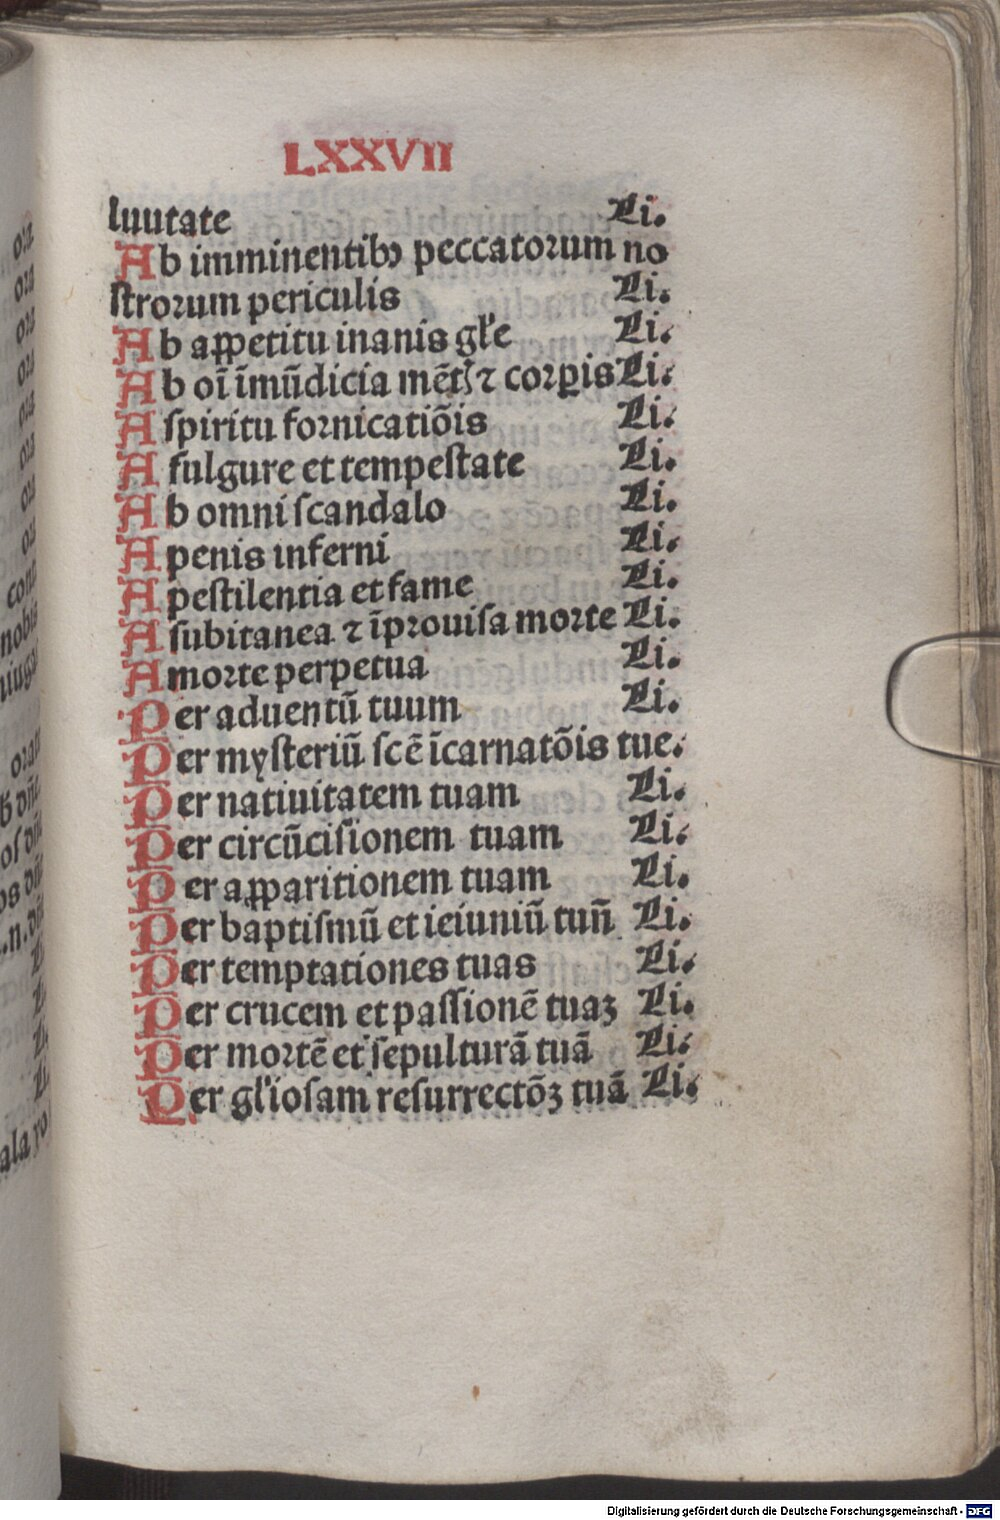 LXXVII
luutate Li.
Ab imminentibꝯ peccatorum no
ſtrorum periculis Li.
Ab appetitu inanis gl'e Li.
Ab oī īmūdicia mēt⁊ corꝑis Li.
A ſpiritu fornicatiōis Li.
A fulgure et tempeſtate Li.
Ab omni ſcandalo Li.
A penis inferni Li.
A peſtilentia et fame Li.
A ſubitanea ⁊ īprouiſa morte Li.
A morte perpetua Li.
Per aduentū tuum Li.
Per myſteriū ſcē īcarnatōis tue.
Per natiuitatem tuam Li.
Per circūciſionem tuam Li.
Per apparitionem tuam Li.
Per baptiſmū et ieiuniū tuū Li.
Per temptationes tuas Li.
Per crucem et paſſionē tuaꝫ Li.
Per mortē et ſepulturā tuā Li.
Per gl'ioſam reſurrectōꝫ tuā Li.
oꝛa
oꝛa
oꝛa
oꝛa
oꝛa
oꝛa
oꝛa
nobis
Digitalisierung gefördert durch die Deutsche Forschungsgemeinschaft - DFG